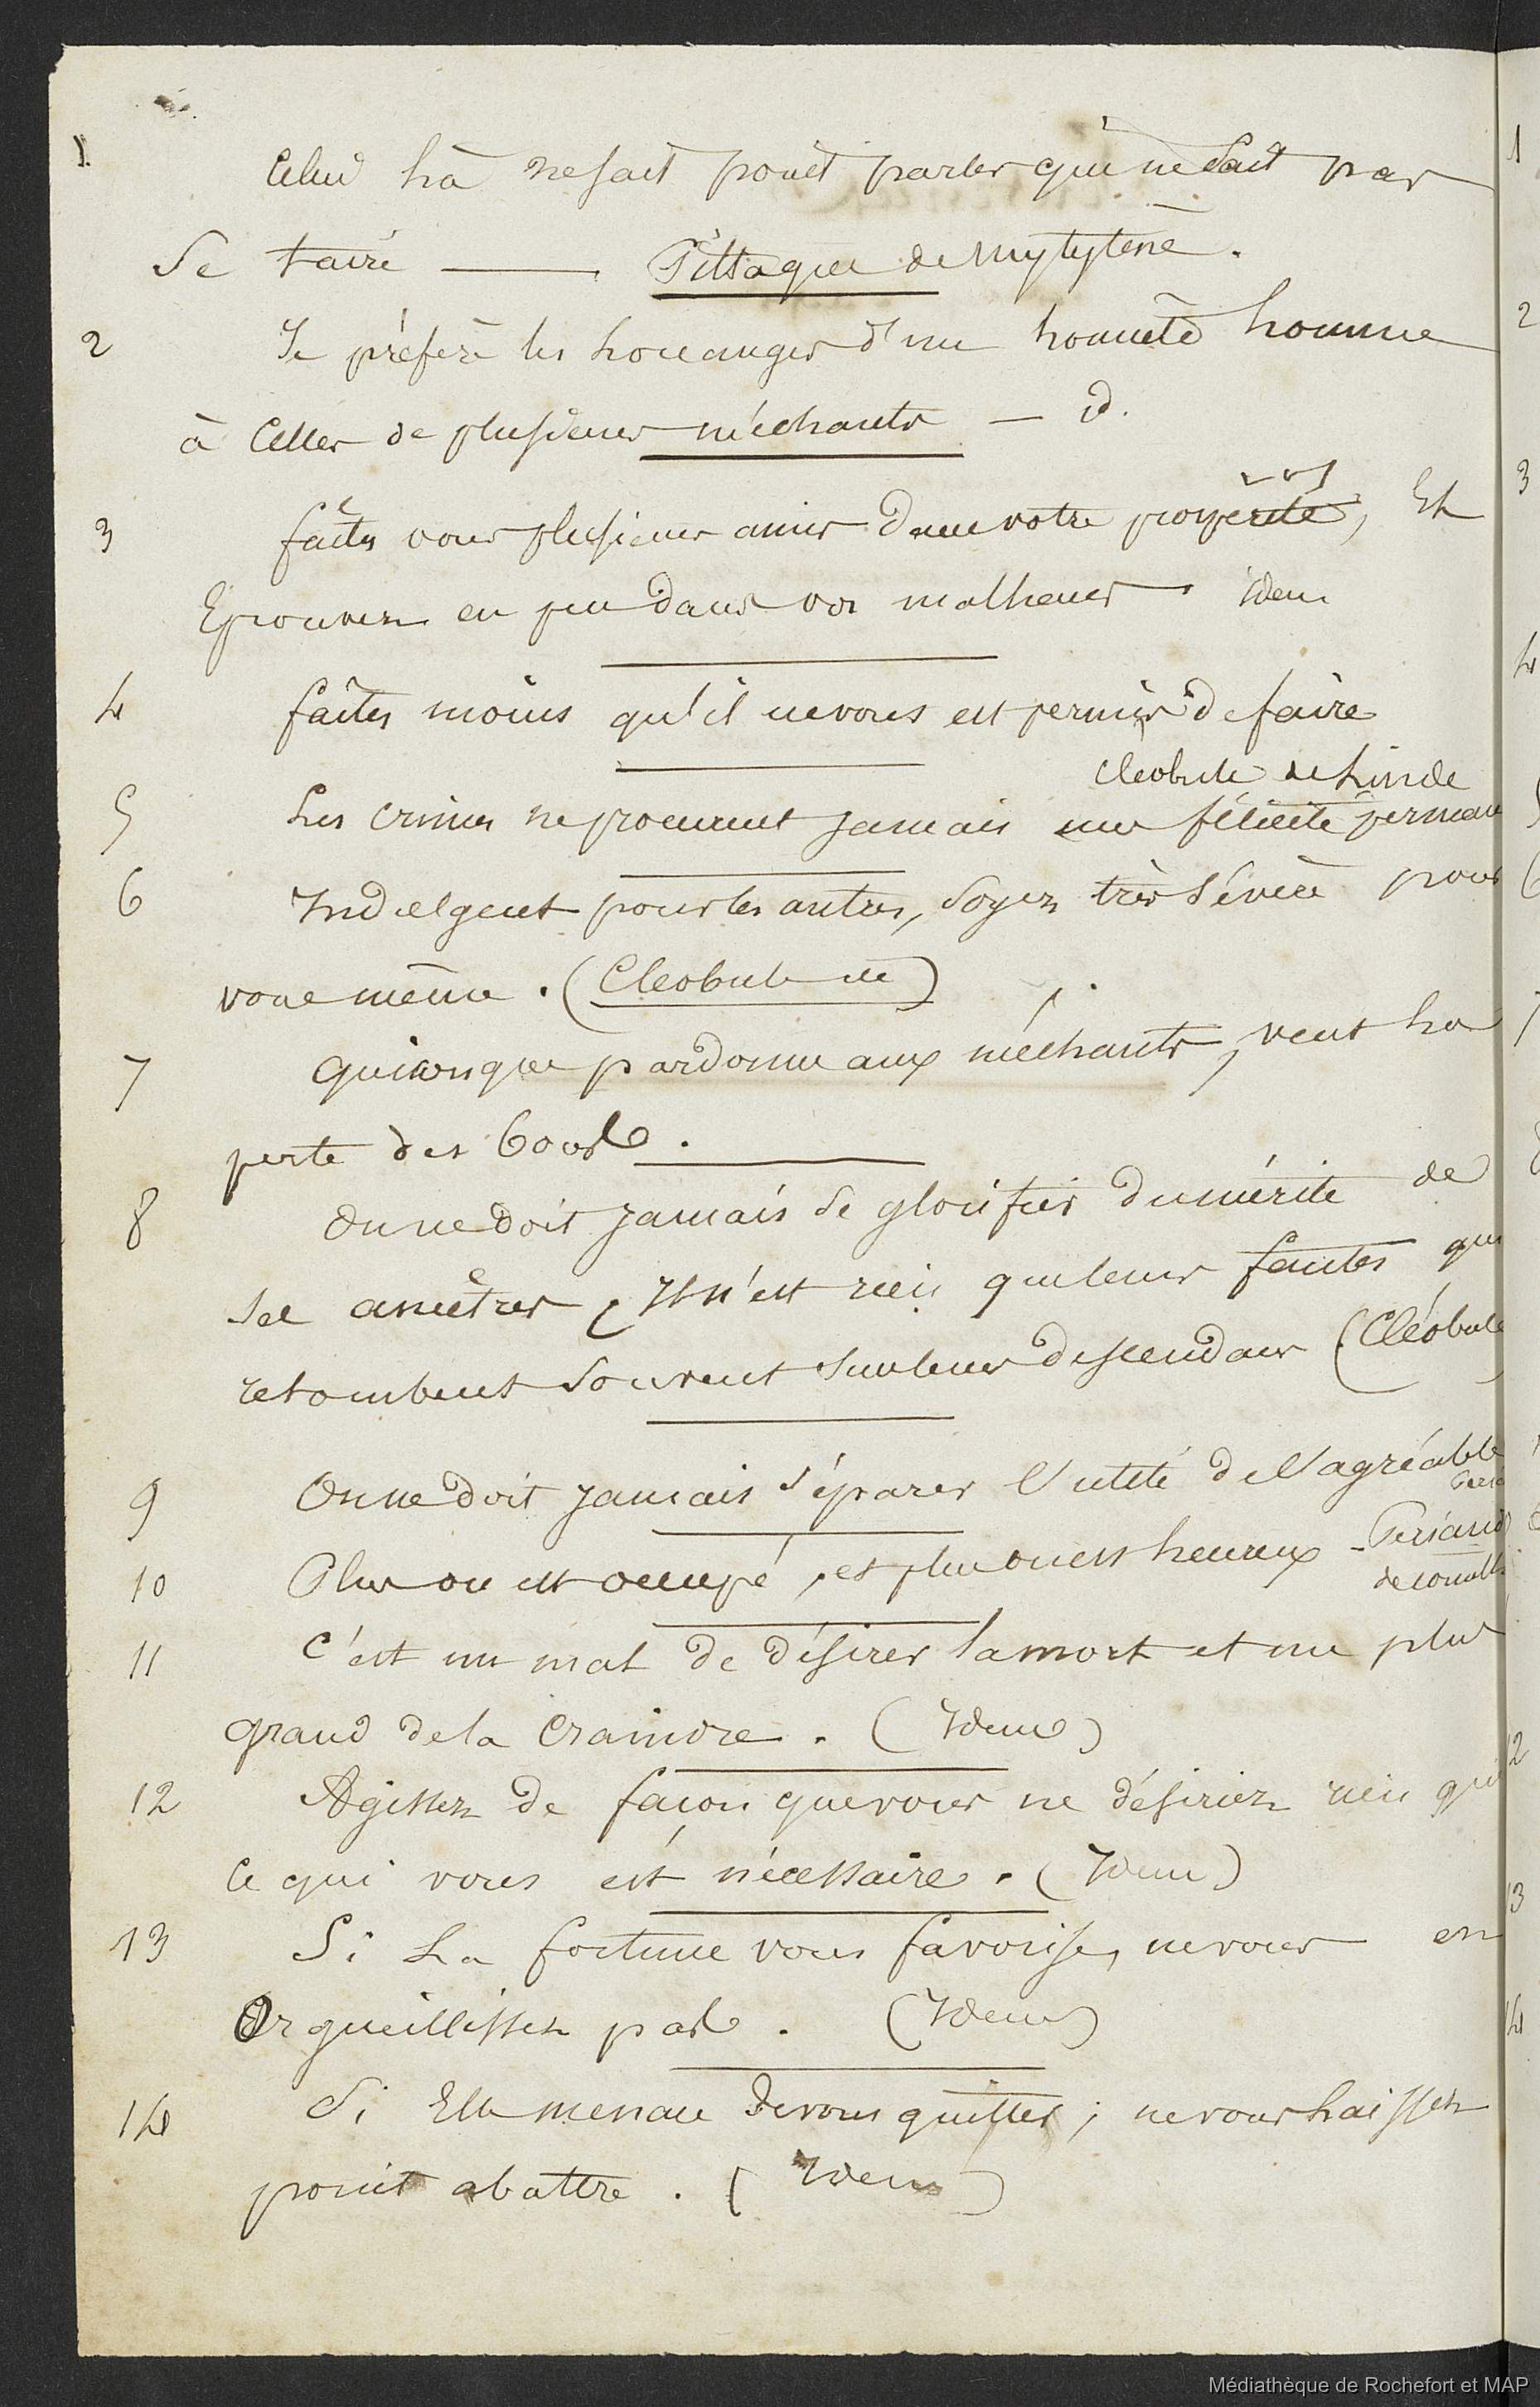 1. Celui là ne sait point parler qui ne sait pas
se taire — Pittaque de Mytytène.
2 Je préfère les louanges d'un honnête homme
à celles de plusieurs méchants — id.
vos
3 faites vous plusieurs amis dans votre prosperité, Et
Eprouvez en peu dans vos malheurs. idem
4 faites moins qu'il ne vous est permis de faire
Cleobule de Linde
5 Les crimes ne procurent jamais une félicité perman
6 Indulgent pour les autres, soyez très sévère pour
vous même. (Cleobule de)
7 Quiconque pardonne aux méchants, veut la
perte des bons.
8 On ne doit jamais se glorifier du mérite de
ses ancêtres, Il n'est rien que leurs fautes qui
retombent souvent sur leurs descendans (Cléobule
9 On ne doit jamais séparer l'utile de l'agréable
10 Plus on est occupé, et plus on est heureux - Periand
de
11 C'est un mal de désirer la mort et un plus
grand de la craindre. (Idem)
12 Agissez de façon que vous ne désiriez rien que
ce qui vous est nécessaire. (Idem)
13 Si La fortune vous favorise, ne vous en
Orgueillissez pas. (Idem)
14 Si Elle menace de vous quitter; ne vous laissez
point abattre. (Idem)
1
2
3
4
12
13
14
Médiathèque de Rochefort et MAP